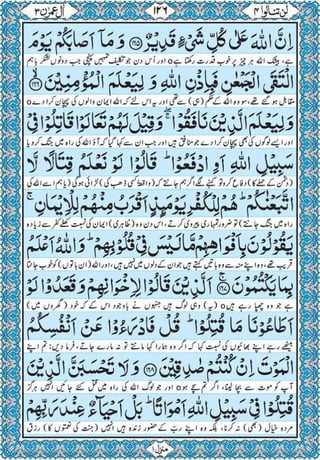 لن تنالوا ٤ ١٢٦ آل عمران ٣
اِنَّ اللّٰهَ عَلٰى كُلِّ شَیْءٍ قَدِیْرٌ۝ وَ مَاۤ اَصَابَكُمْ یَوْمَ
ہے، بیشک اللہ ہر چیز پر خوب قدرت رکھتا ہے o اور اُس دن جو تکلیف تمہیں پہنچی جب دونوں لشکر باہم
الْتَقَى الْجَمْعٰنِ فَبِاِذْنِ اللّٰهِ وَ لِیَعْلَمَ الْمُؤْمِنِیْنَ۝
مقابل ہو گئے تھے سو وہ اللہ کے حکم (ہی) سے تھی اور یہ اس لئے کہ اللہ ایمان والوں کی پہچان کرا دے o
وَ لِیَعْلَمَ الَّذِیْنَ نَافَقُوْا ۚ وَ قِیْلَ لَهُمْ تَعَالَوْا قَاتِلُوْا فِیْ
اور ایسے لوگوں کی بھی پہچان کرا دے جو منافق ہیں اور جب ان سے کہا گیا کہ آؤ اللہ کی راہ میں جنگ کرو یا
سَبِیْلِ اللّٰهِ اَوِ ادْفَعُوْا ؕ قَالُوْا لَوْ نَعْلَمُ قِتَالًا لَّا
(دشمن کے حملے کا) دفاع کرو، تو کہنے لگے: اگر ہم جانتے کہ (واقعۃً کسی ڈھب کی) لڑائی ہو گی
اتَّبَعْنٰكُمْ ؕ هُمْ لِلْكُفْرِ یَوْمَىِٕذٍ اَقْرَبُ مِنْهُمْ لِلْاِیْمَانِ ۚ
راہ میں جنگ جانتے) تو ضرور تمہاری پیروی کرتے، اس دن وہ (ظاہری) ایمان کی نسبت کھلے کفر سے زیادہ
یَقُوْلُوْنَ بِاَفْوَاهِهِمْ مَّا لَیْسَ فِیْ قُلُوْبِهِمْ ؕ وَ اللّٰهُ اَعْلَمُ
قریب تھے، وہ اپنے منہ سے وہ باتیں کہتے ہیں جو ان کے دلوں میں نہیں ہیں، اور اللہ (ان باتوں) کو خوب جانتا
بِمَا یَكْتُمُوْنَ ۝ اَلَّذِیْنَ قَالُوْا لِاِخْوَانِهِمْ وَ قَعَدُوْا لَوْ
ہے جو وہ چھپا رہے ہیں o (یہ) وہی لوگ ہیں جنہوں نے باوجود اس کے کہ خود (گھروں میں)
اَطَاعُوْنَا مَا قُتِلُوْا ؕ قُلْ فَادْرَءُوْا عَنْ اَنْفُسِكُمُ
بیٹھے رہے اپنے بھائیوں کی نسبت کہا کہ اگر وہ ہمارا کہا مانتے تو نہ مارے جاتے، فرما دیں: تم اپنے
الْمَوْتَ اِنْ كُنْتُمْ صٰدِقِیْنَ ۝ وَ لَا تَحْسَبَنَّ الَّذِیْنَ
آپ کو موت سے بچا لینا، اگر تم سچے ہو o اور جو لوگ اللہ کی راہ میں قتل کئے جائیں انہیں ہرگز
قُتِلُوْا فِیْ سَبِیْلِ اللّٰهِ اَمْوَاتًا ؕ بَلْ اَحْیَآءٌ عِنْدَ رَبِّهِمْ
مردہ خیال (بھی) نہ کرنا، بلکہ وہ اپنے رب کے حضور زندہ ہیں انہیں (جنت کی نعمتوں کا) رزق
منزل ۱